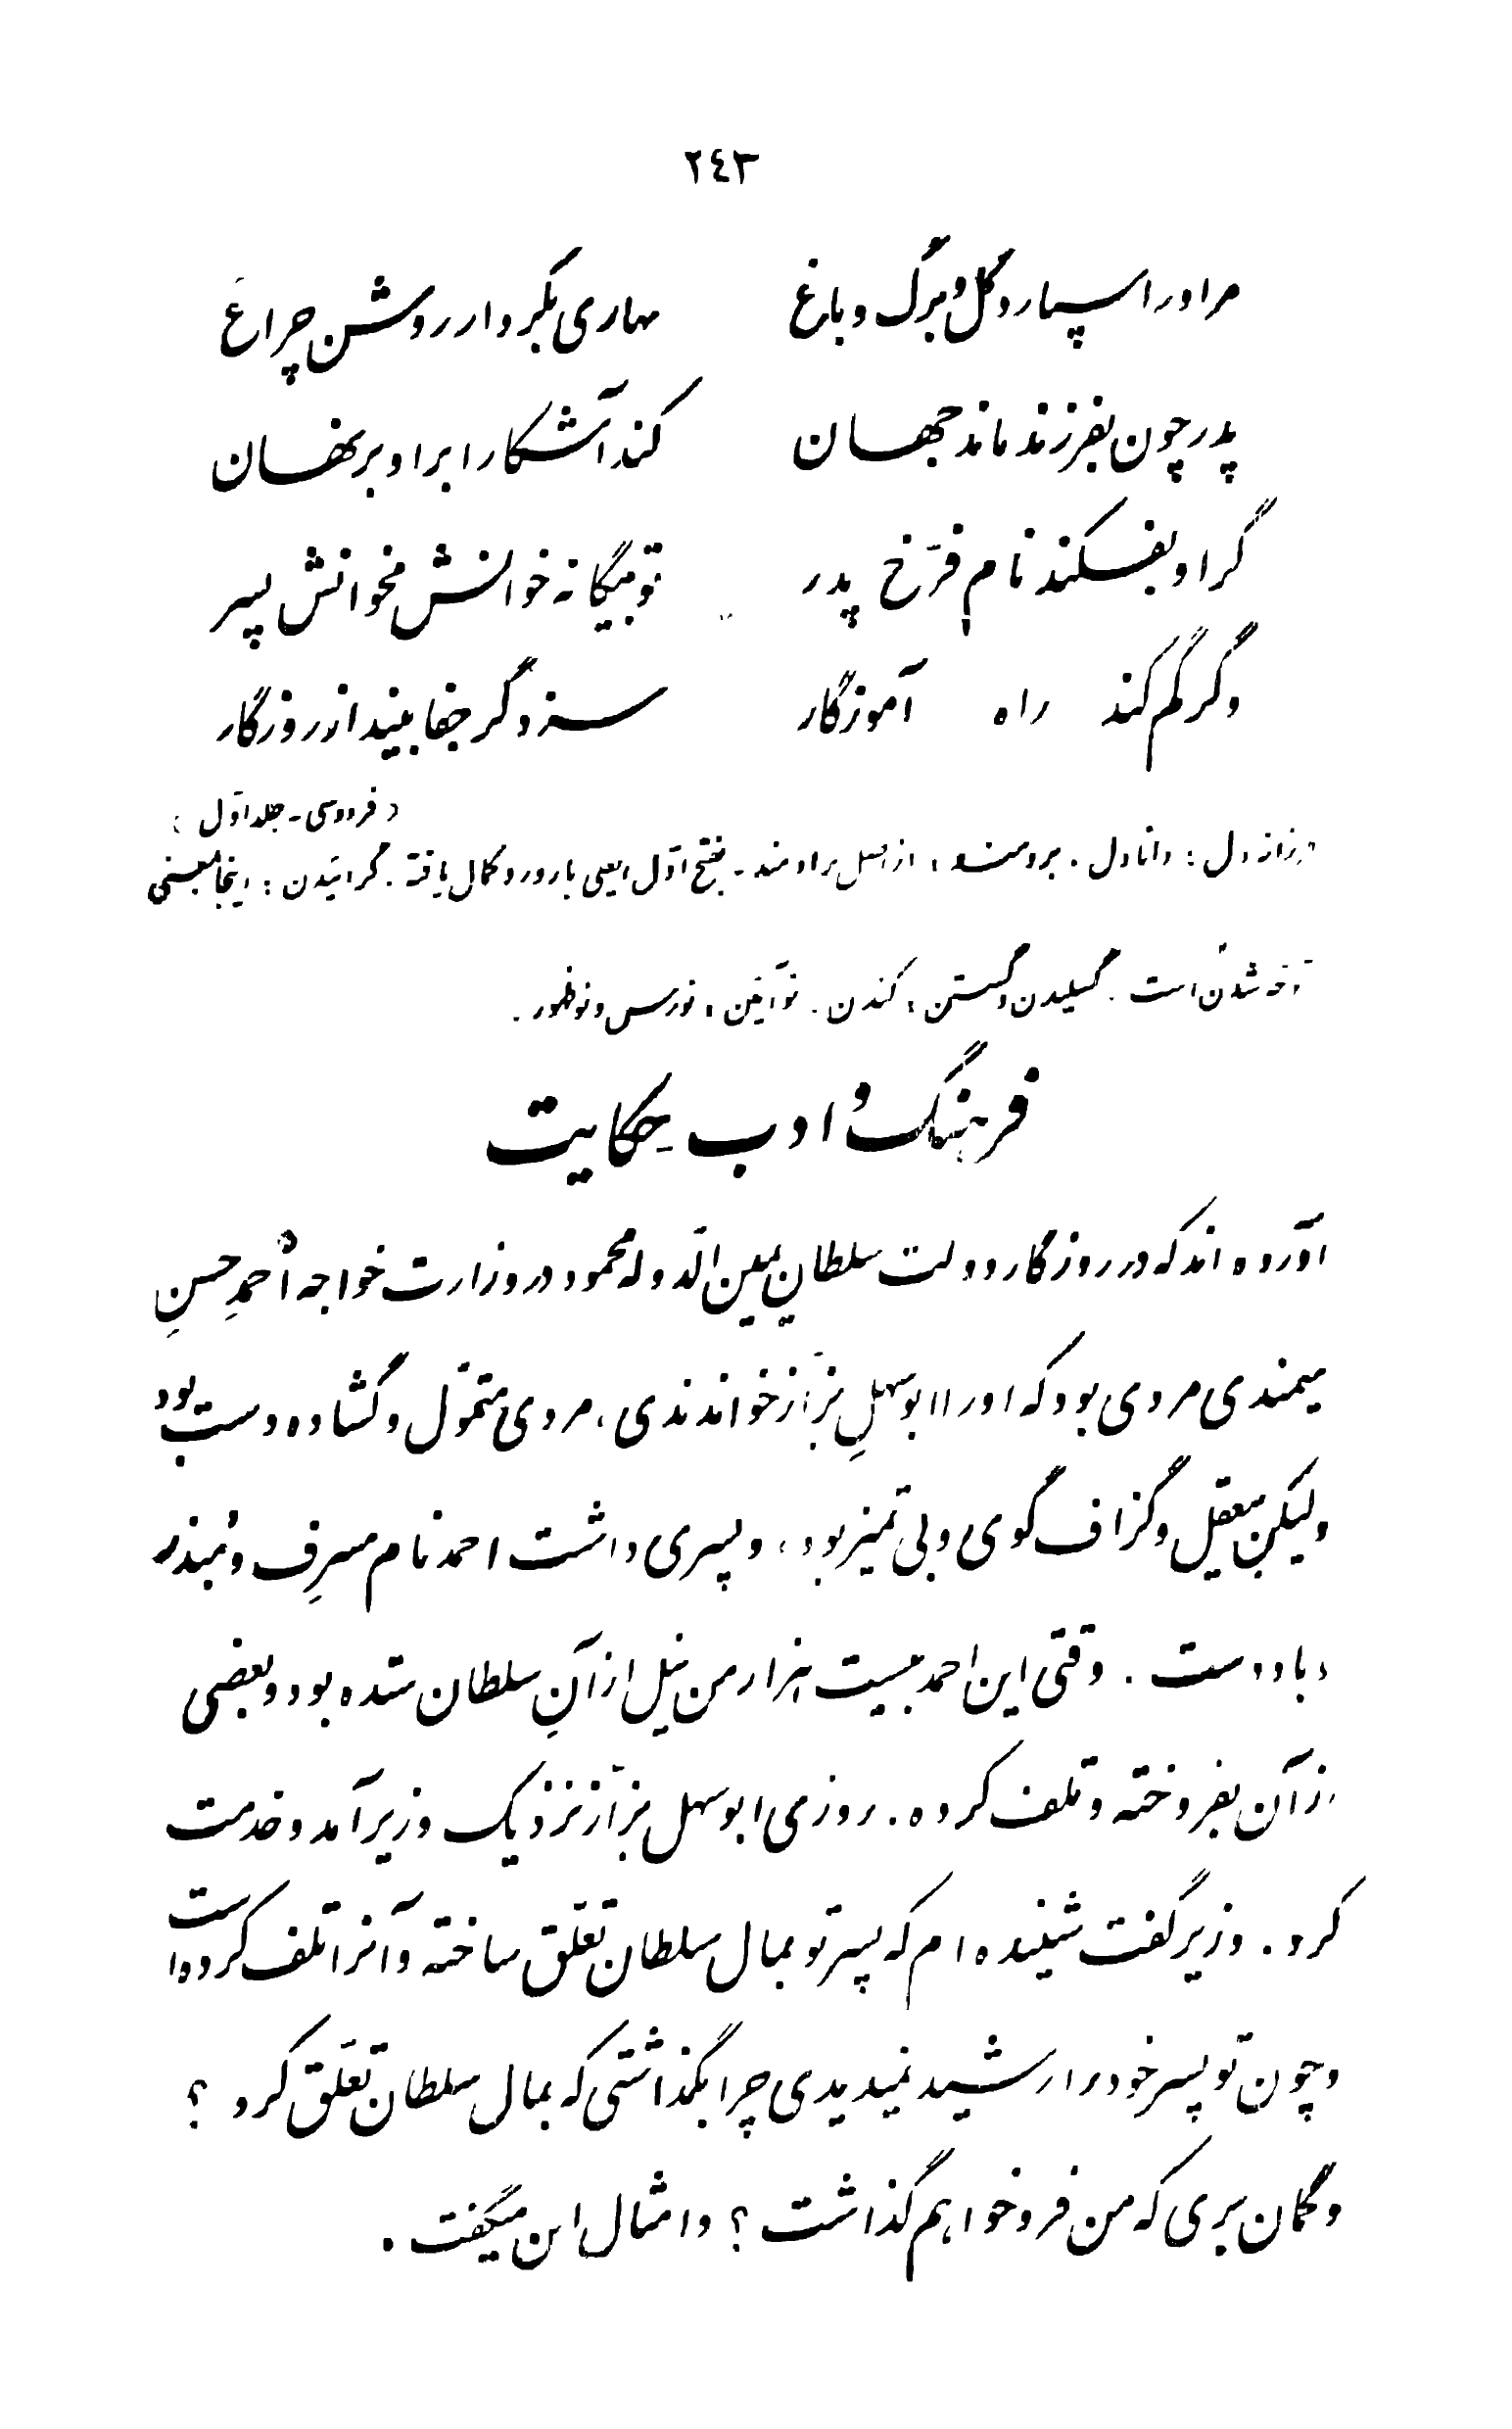 ٢٤٣
مر او را سپارد گل و برگ و باغ    بهاری بکردار روشن چراغ
پدر چون بفرزند ماند جهان    کند آشکارا بر او بر نهان
گر او بفکند نام فرّخ پدر    تو بیگانه خوانش مخوانش پسر
و گر گم کند راه آموزگار    سزد گر جفا بیند از روزگار
(فردوسی - جلد اوّل)
فرزانه دل : دانا دل . برومند ، از اصل براومند - بفتح اوّل ، یعنی بارور و کمال یافته . گرائیدن : اینجا بمعنی
شدن است . گسیلیدن و گستن ، کندن . نوآئین ، نورس و نوظهور .
فرهنگ و ادب - حکایت
آورده‌اند که در روزگار دولت سلطان یمین الدّوله محمود در وزارت خواجه احمدِ حسنِ
میمندی مردی بود که او را ابوسهلِ بزّاز خواندندی ، مردی متموّل و گشاده دست بود
و لیکن بی‌عقل و گزاف گوی و بی تمیز بود ، و پسری داشت احمد نام مسرِف و مُبذر
و باد دست . وقتی این احمد بیست هزار من نیل از آنِ سلطان ستده بود و بعضی
از آن بفروخته و تلف کرده . روزی ابوسهل بزّاز نزدیک وزیر آمد و خدمت
کرد . وزیر گفت شنیده‌ام که پسر تو بمال سلطان تعلّق ساخته و آنرا تلف کرده است
و چون تو پسر خود را رشید نمیدیدی چرا بگذاشتی که بمال سلطان تعلّق کرد ؟
و گمان بری که من فرو خواهم گذاشت ؟ و امثال این میگفت .